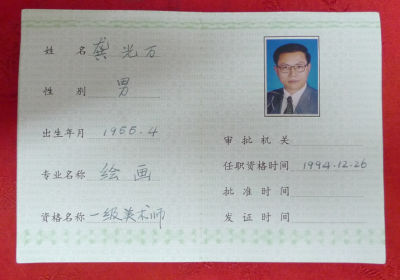 姓 名 龚光万
性 别 男
出生年月 1955.4
专业名称 绘画
资格名称 一级美术师
审批机关
任职资格时间 1994.12.26
批准时间
发证时间